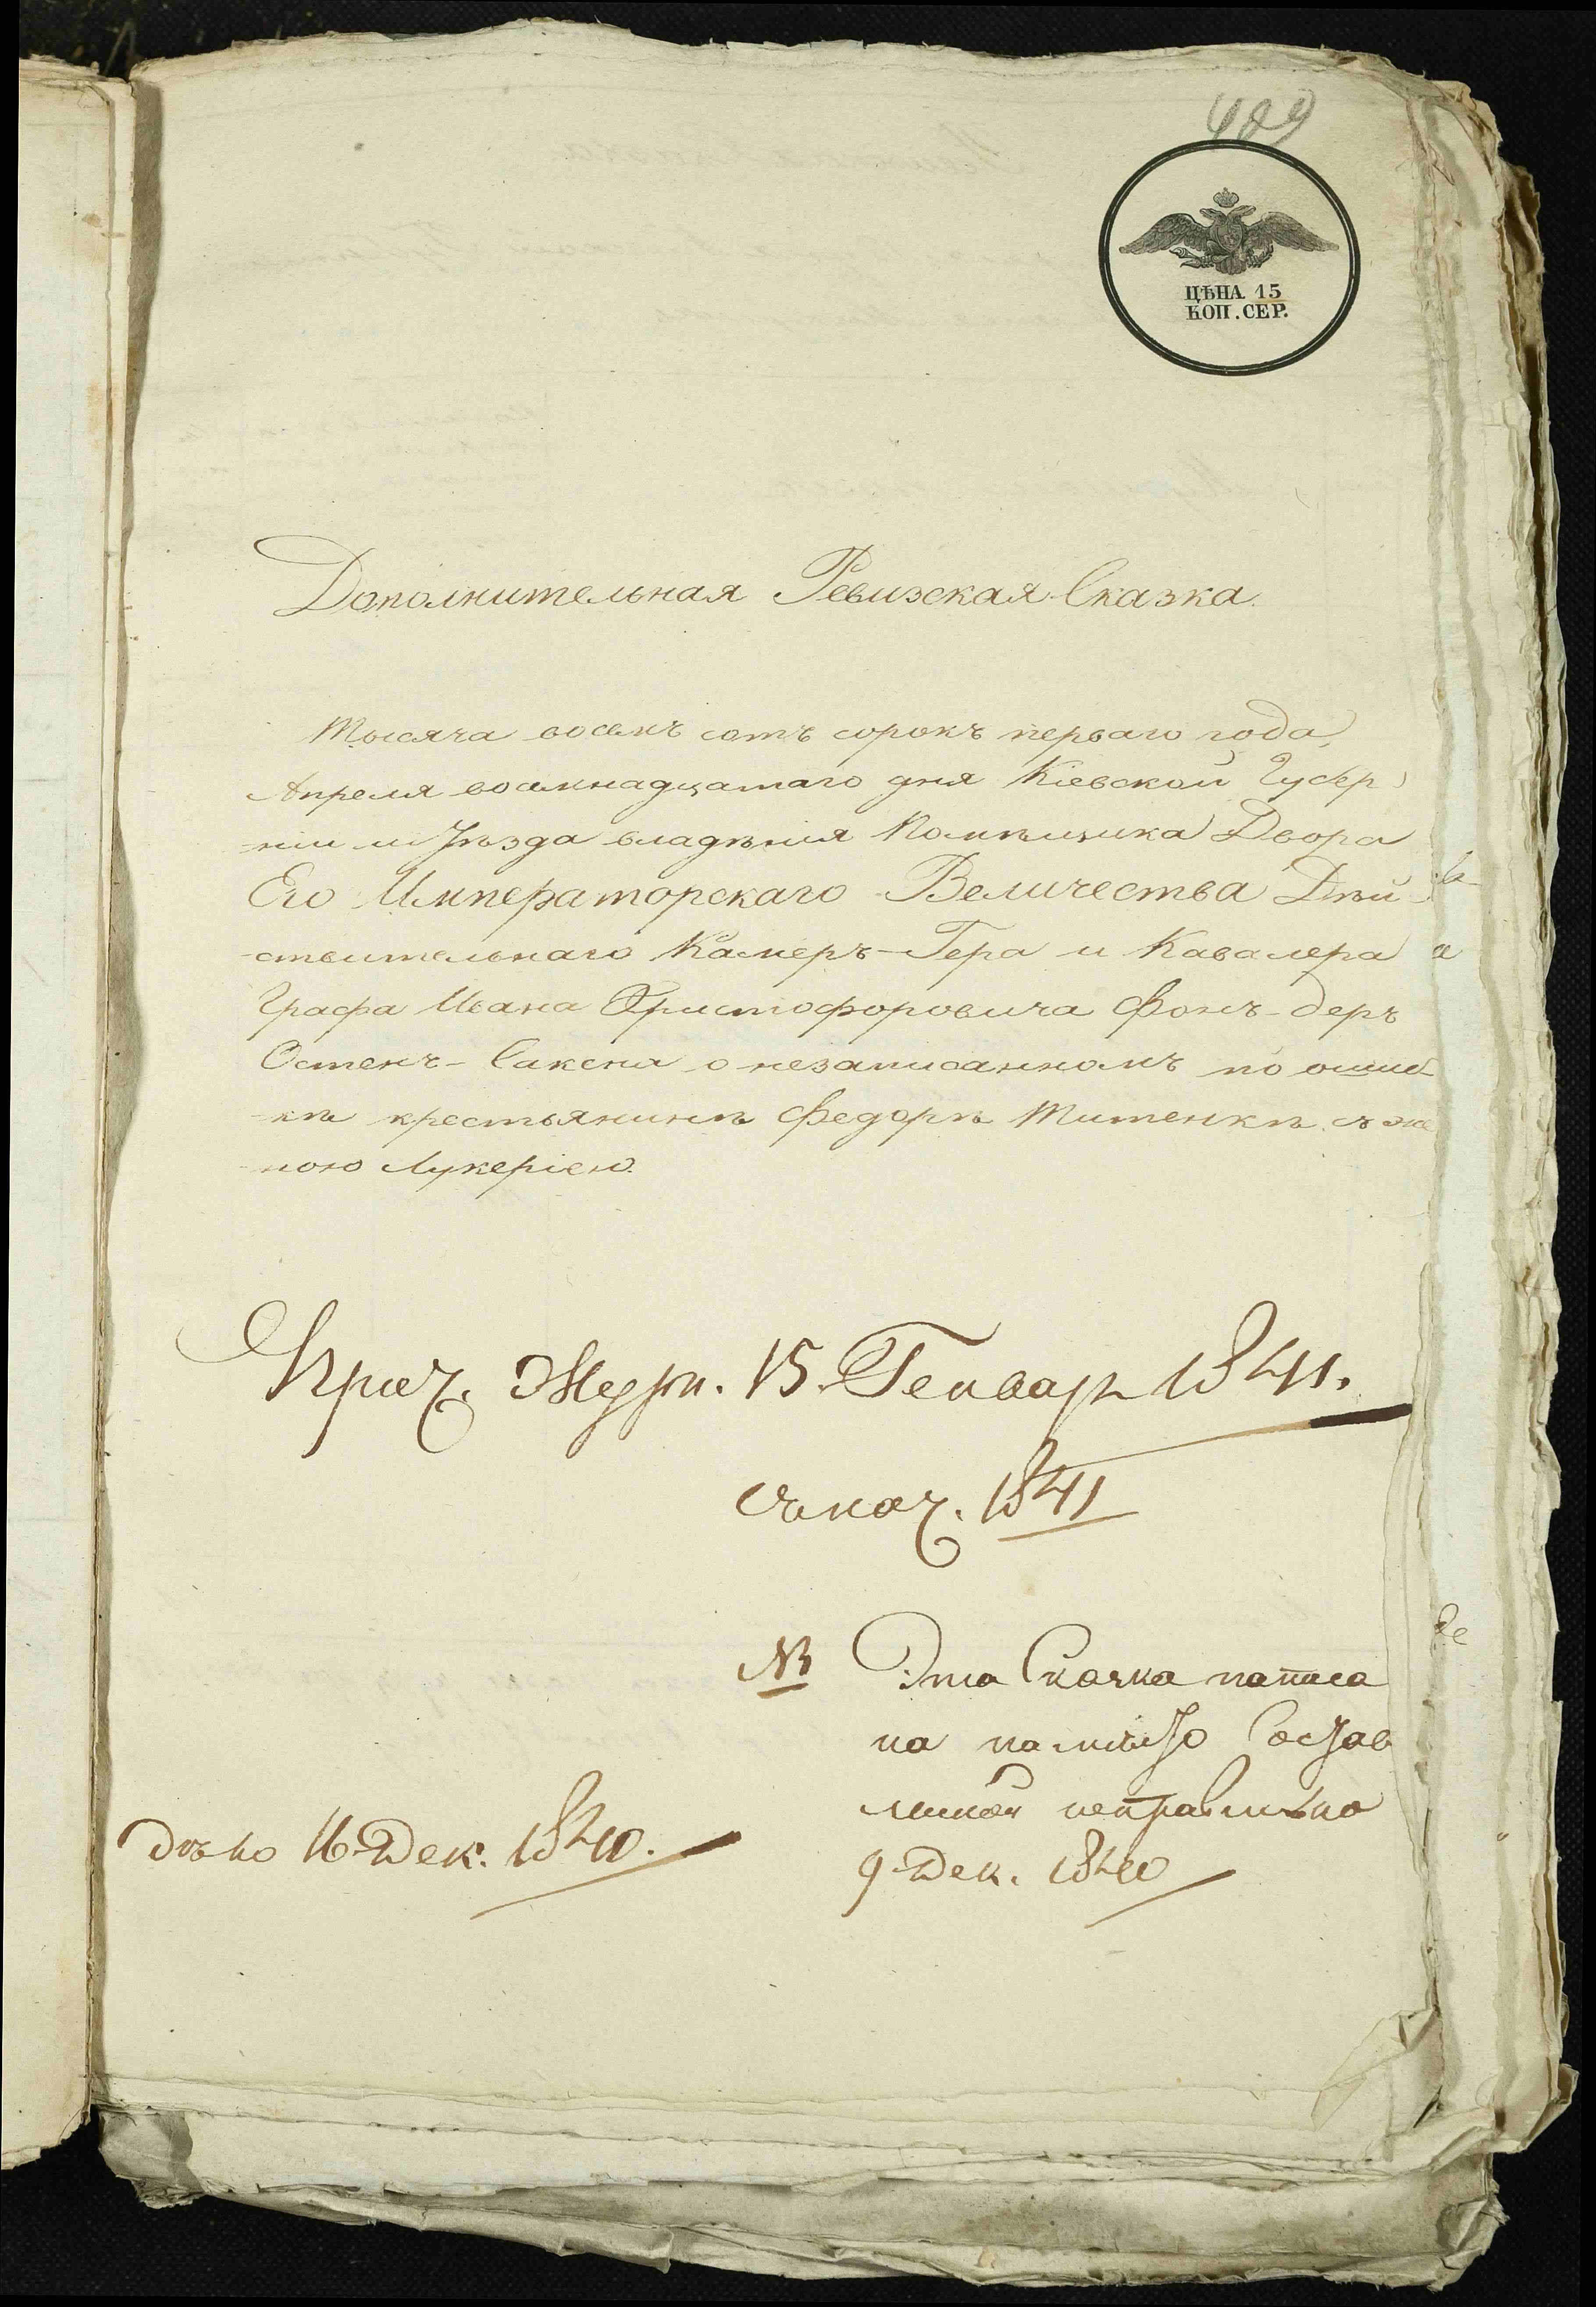 489
ЦѢНА 15
КОП. СЕР.
Дополнительная Ревизская Сказка.
Тысяча восемъ сотъ сорокъ перваго года,
Апреля восемнадцатаго дня Кіевской Губер
-ніи и Уѣзда владѣнія Помѣщика Двора
Его Императорскаго Величества Дѣй-
-ствительнаго Камеръ-Гера и Кавалера
Графа Ивана Христофоровича Фонъ-деръ
Остенъ-Сакена о незаписанномъ по ошиб-
-кѣ крестьянинѣ Федорѣ Титенкѣ съ же
-ною Лукеріею.
Журн. 15 Генваря 1841.
1841
NB Эта Сказка написа
на на мѣсто Состав
ленной неправильно
9 Дек. 1840
16 Дек. 1840.